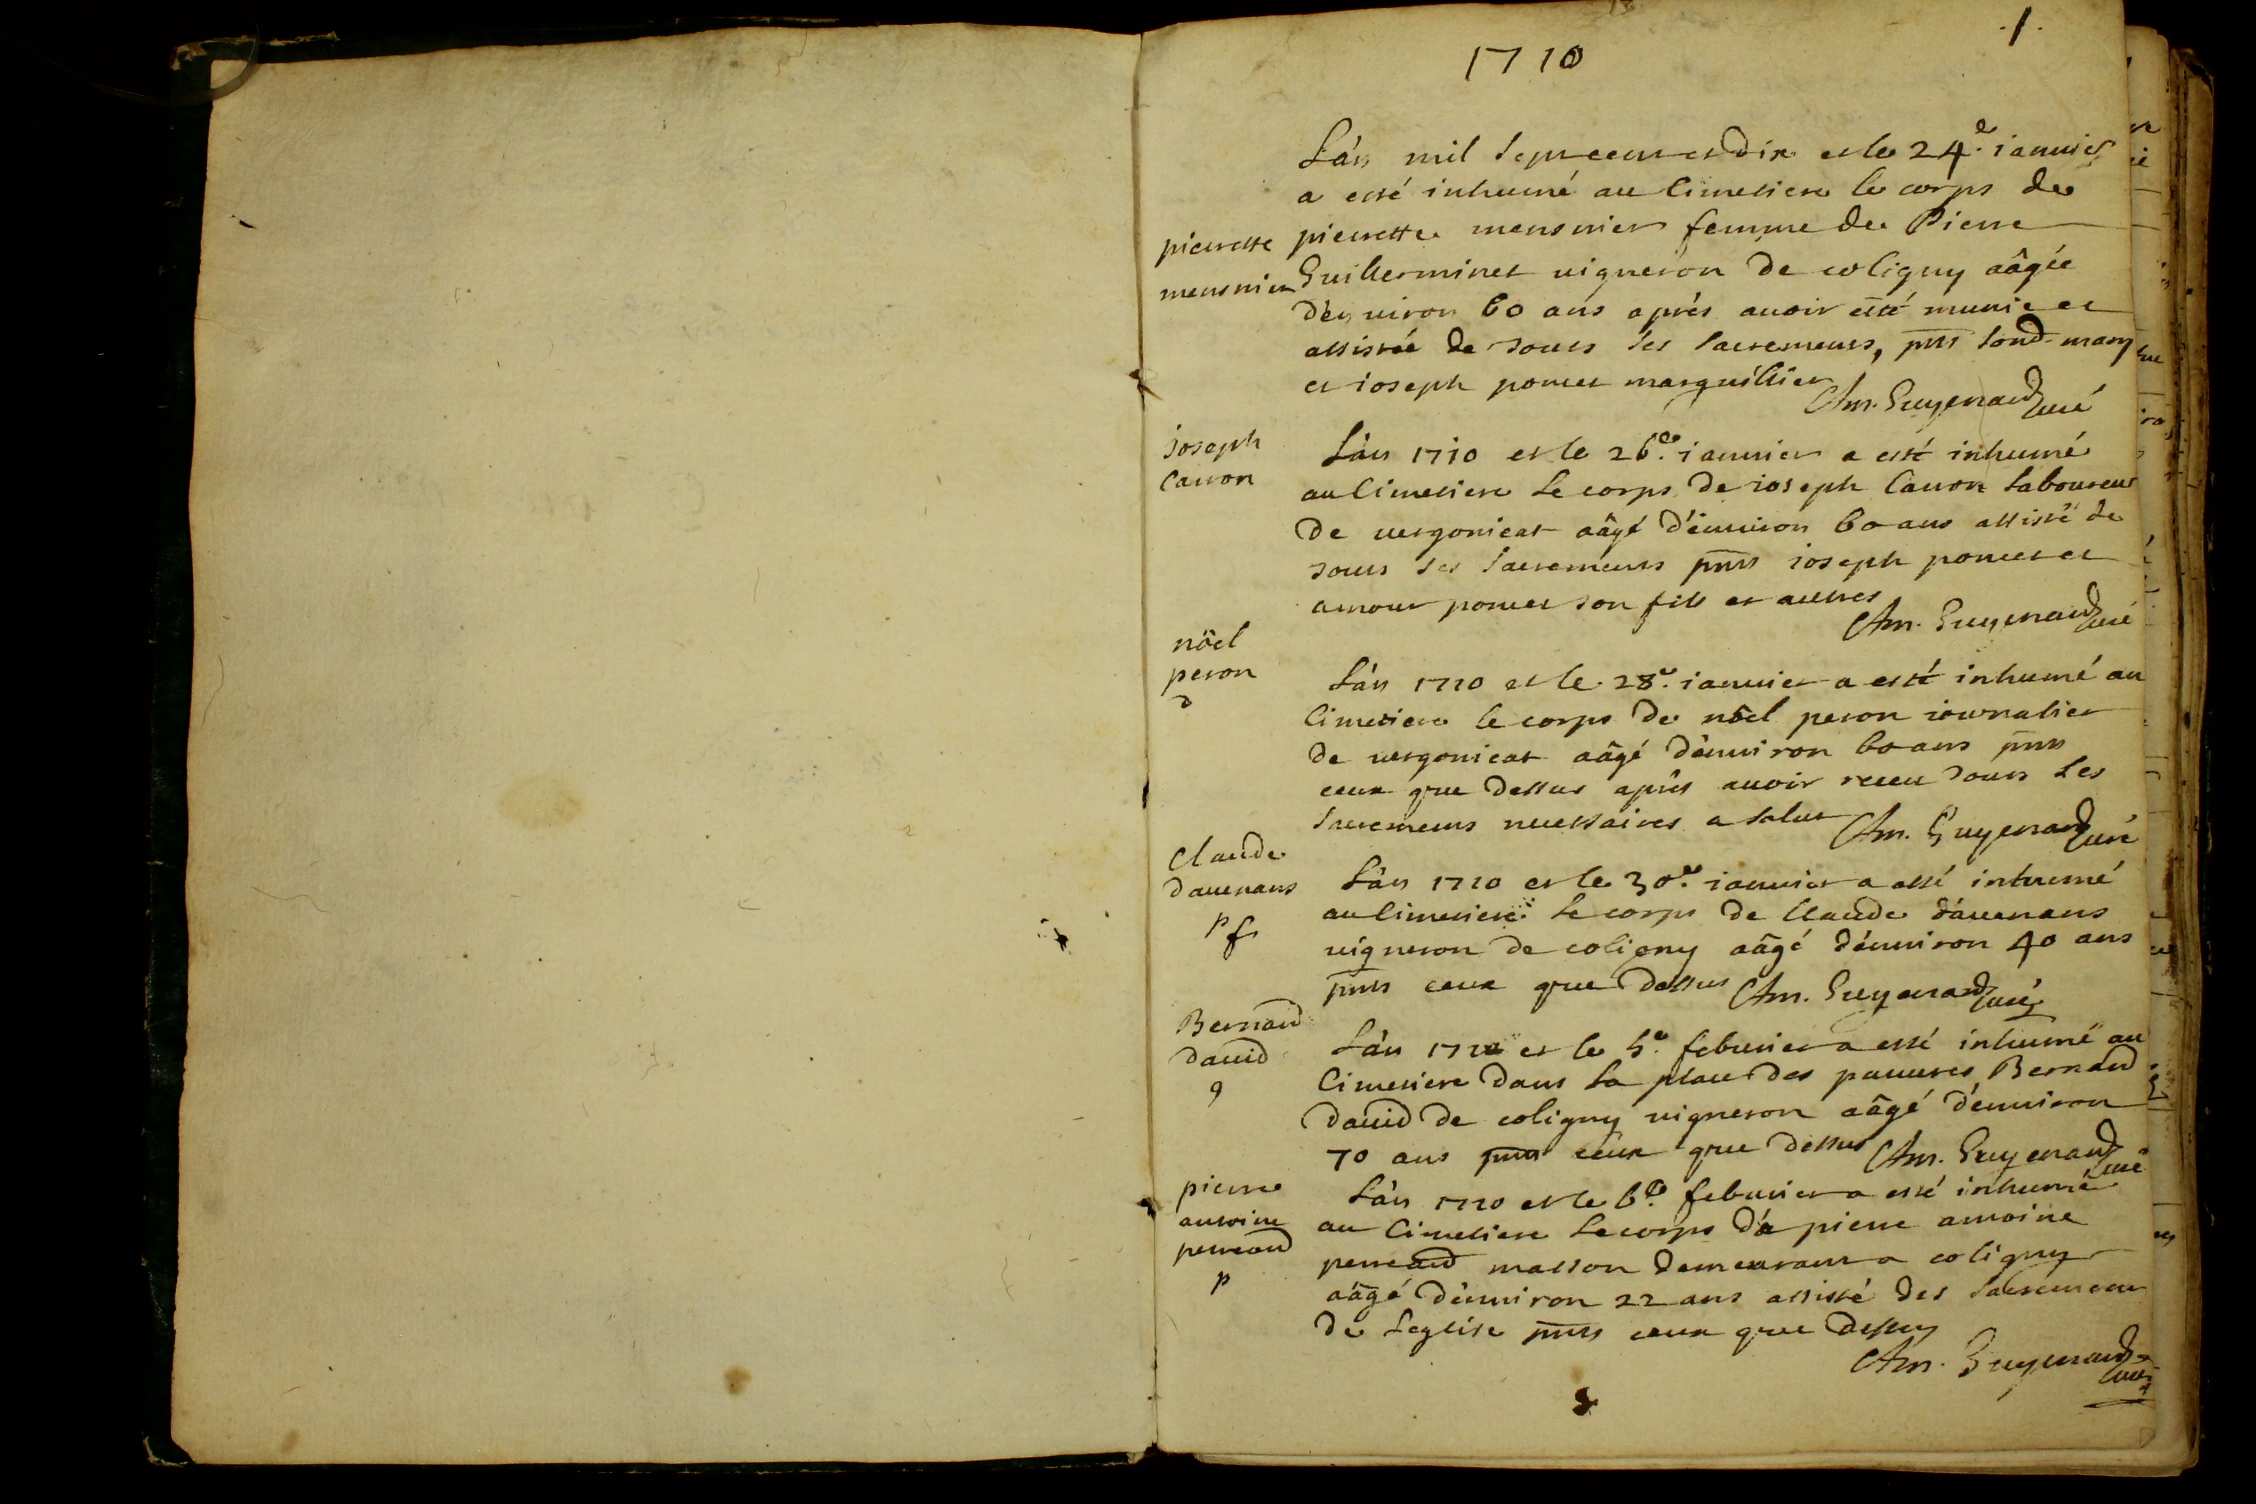 1710
.1.
L'an mil sept cent et dix et le 24e. ianuier
a esté inhumé au Cimetiere le corps de
pierrette
meusnier
pierrette meusnier femme de Pierre
Guillerminet uigneron de coligny aâgée
d'enuiron 60 ans aprés auoir esté munie et
assistée de touts les sacrements, pnts sond. mary
et ioseph poncet marguillier
Am. Guyenard curé
joseph
Cauon
L'an 1710 et le 26e. ianuier a esté inhumé
au Cimetiere le corps de ioseph Cauon laboureur
de uergonieat aâgé d'enuiron 60 ans assisté de
touts les sacrements pnts ioseph poncet et
amour poncet son fils et autres
Am. Guyenard curé
nöel
peron
L'an 1710 et le 28e. ianuier a esté inhumé au
Cimetiere le corps de nöel peron iournalier
de uergonieat aâgé d'enuiron 60 ans pnts
ceux que dessus aprés auoir receu touts les
sacrements necessaires a salut
Am. Guyenard curé
Claude
dauenans
p f
L'an 1710 et le 30e. ianuier a esté inhumé
au Cimetiere le corps de Claude dauenans
uigneron de coligny aâgé d'enuiron 40 ans
pnts ceux que dessus Am. Guyenard curé
Bernard
dauid
9
L'an 1710 et le 5e. feburier a esté inhumé au
Cimetiere dans la place des pauures Bernard
dauid de coligny uigneron aâgé d'enuiron
70 ans pnts ceux que dessus Am. Guyenard curé
pierre
antoine
perreard
p
L'an 1710 et le 6e. feburier a esté inhumé
au Cimetiere le corps de pierre antoine
perreard masson demeurant a coligny
aâgé d'enuiron 22 ans assisté des sacrements
de leglise pnts ceux que dessus
Am. Guyenard curé